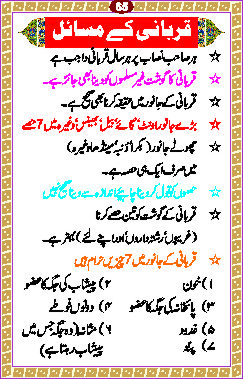 65
قربانی کے مسائل
☆ ہر صاحب نصاب پر ہر سال قربانی واجب ہے
☆ قربانی کا گوشت غیر مسلموں کو دینا بھی جائز ہے۔
☆ قربانی کے جانور میں عقیقہ کرنا بھی صحیح ہے۔
☆ بڑے جانور اونٹ، گائے، بیل، بھینس وغیرہ میں 7 حصے
☆ چھوٹے جانور (بکرا دنبہ مینڈھا وغیرہ)
میں صرف ایک ہی حصہ ہے۔
☆ حصوں کو تول کر دینا چاہیے اندازہ سے دینا صحیح نہیں
☆ قربانی کے گوشت کو تین حصے کرنا
(غریبوں، رشتہ داروں، اور اپنے لئے) بہتر ہے۔
☆ قربانی کے جانور میں 7 چیزیں حرام ہیں
۱) خون ۲) پیشاب کی جگہ کا عضو
۳) پاخانہ کی جگہ کا عضو ۴) دونوں فوطے
۵) غدود ۶) مثانہ (وہ جگہ جس میں
۷) پتہ پیشاب رہتا ہے)